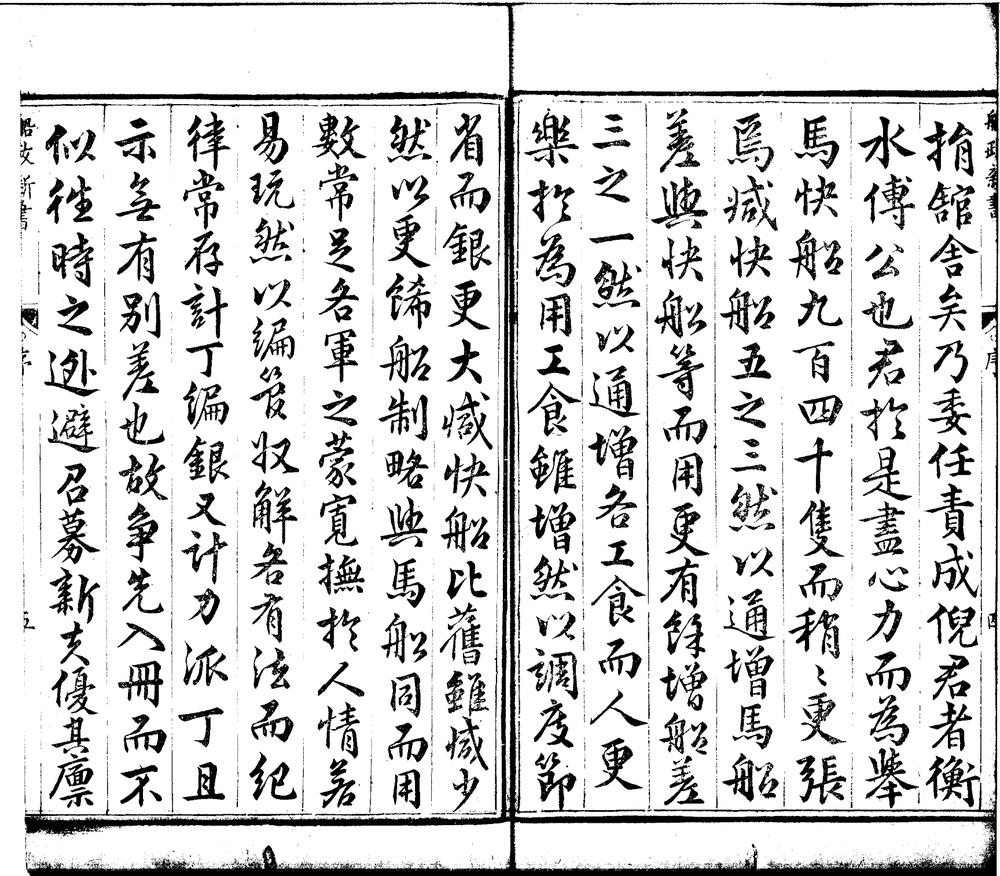 船政新書
捐館舍矣乃委任責成倪君者衡
水傅公也君於是盡心力而為舉
馬快船九百四十隻而稍〻更張
焉減快船五之三然以通增馬船
差與快船等而用更有餘增船差
三之一然以通增各工食而人更
樂於為用工食雖增然以調度節
省而銀更大減快船比舊雖減少
然以更餙船制略與馬船同而用
數常足各軍之蒙寬撫於人情若
易玩然以編笩収解各有法而紀
律常存計丁編銀又計力派丁且
示無有別差也故爭先入冊而不
似徃時之逊避召募新夫優其廩
船政新書
序
五